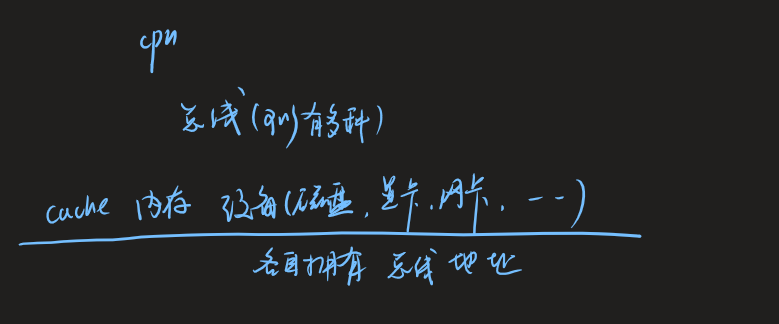 cpu
总线(    有多种)
cache 内存 设备(磁盘,显卡,网卡, --)
各自拥有 总线地址